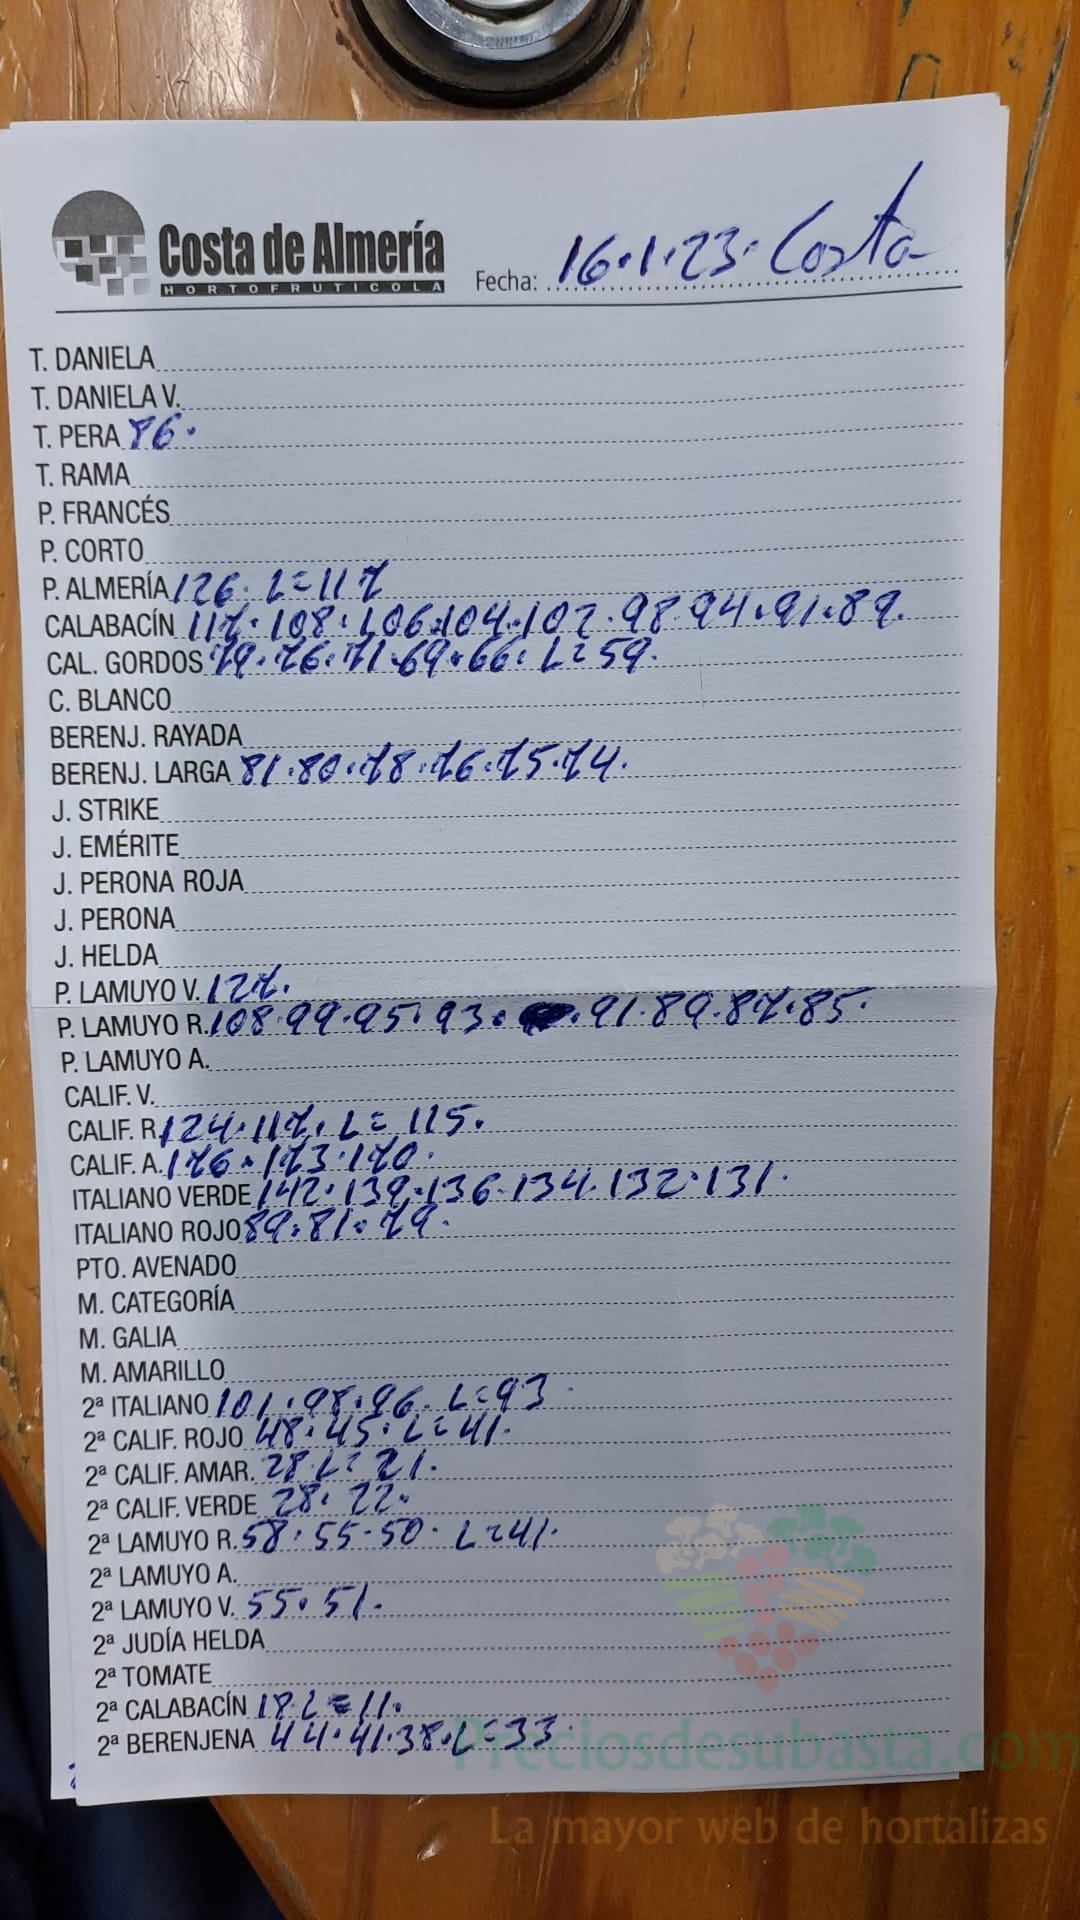 Costa de Almería
HORTOFRUTICOLA
Fecha: 16.1.23. Costa
T. DANIELA
T. DANIELA V.
T. PERA 86.
T. RAMA
P. FRANCÉS
P. CORTO
P. ALMERÍA 126. L=117
CALABACÍN 117.108.106.104.102.98.94.91.89.
CAL. GORDOS 79.76.71.69.66. L=59.
C. BLANCO
BERENJ. RAYADA
BERENJ. LARGA 81.80.78.76.75.74.
J. STRIKE
J. EMÉRITE
J. PERONA ROJA
J. PERONA
J. HELDA
P. LAMUYO V. 127.
P. LAMUYO R. 108.99.95.93. .91.89.87.85.
P. LAMUYO A.
CALIF. V.
CALIF. R. 124.117. L=115.
CALIF. A. 176.173.170.
ITALIANO VERDE 142.139.136.134.132.131.
ITALIANO ROJO 89.81.79.
PTO. AVENADO
M. CATEGORÍA
M. GALIA
M. AMARILLO
2ª ITALIANO 101.98.96. L=93
2ª CALIF. ROJO 48.45. L=41.
2ª CALIF. AMAR. 28 L=21.
2ª CALIF. VERDE 28. 22.
2ª LAMUYO R. 58.55.50. L=41.
2ª LAMUYO A.
2ª LAMUYO V. 55.51.
2ª JUDÍA HELDA
2ª TOMATE
2ª CALABACÍN 18. L=11.
2ª BERENJENA 44.41.38. L=33.
Preciosdesubasta.com
La mayor web de hortalizas